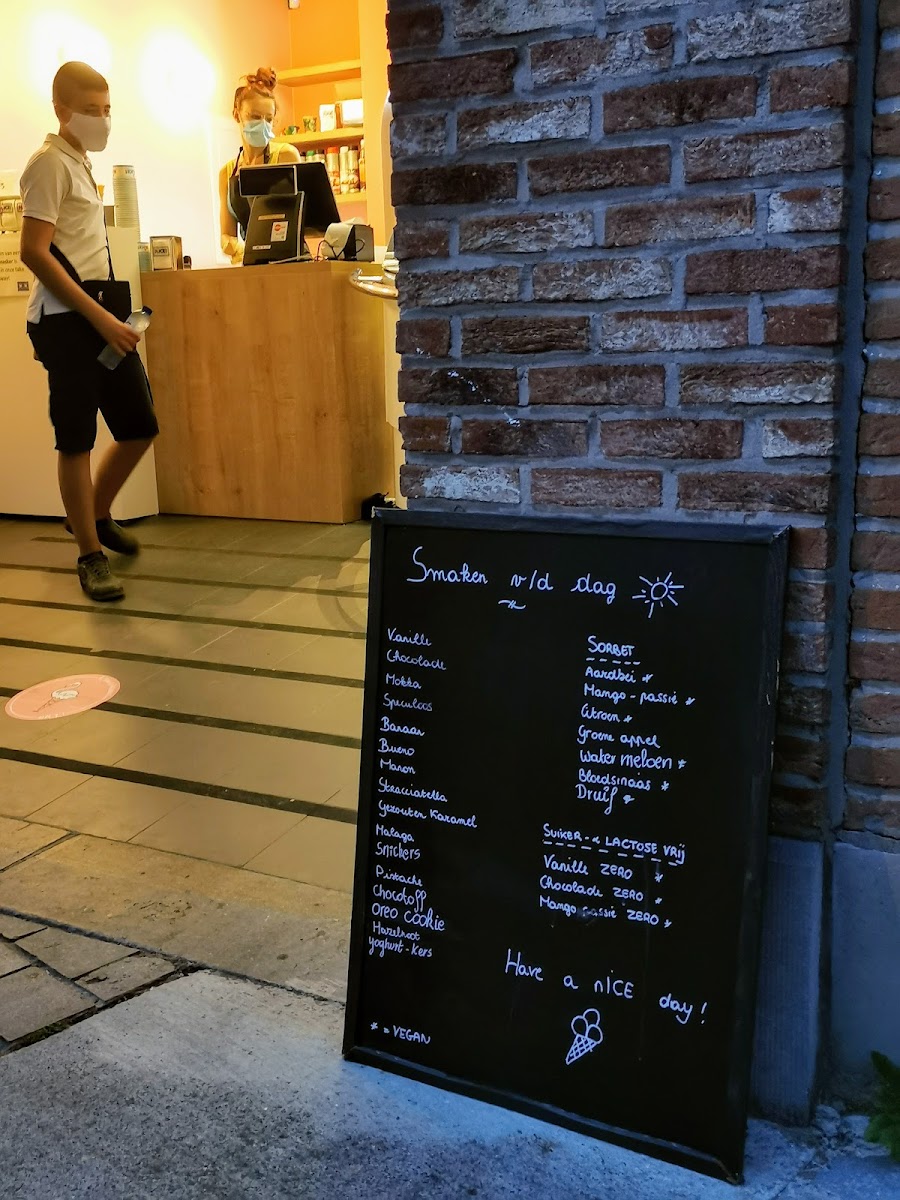 Smaken v/d dag
Vanille
Chocolade
Mokka
Speculoos
Banaan
Bueno
Maron
Stracciatella
Gezouten Karamel
Malaga
Snickers
Pistache
Chocotoff
Oreo Cookie
Hazelnoot
Yoghurt-Kers
* = VEGAN
SORBET
Aardbei *
Mango - passie *
Citroen *
Groene appel
Water meloen *
Bloedsinaas *
Druif *
SUIKER- & LACTOSE VRIJ
Vanille ZERO *
Chocolade ZERO *
Mango passie ZERO *
Have a nICE day!